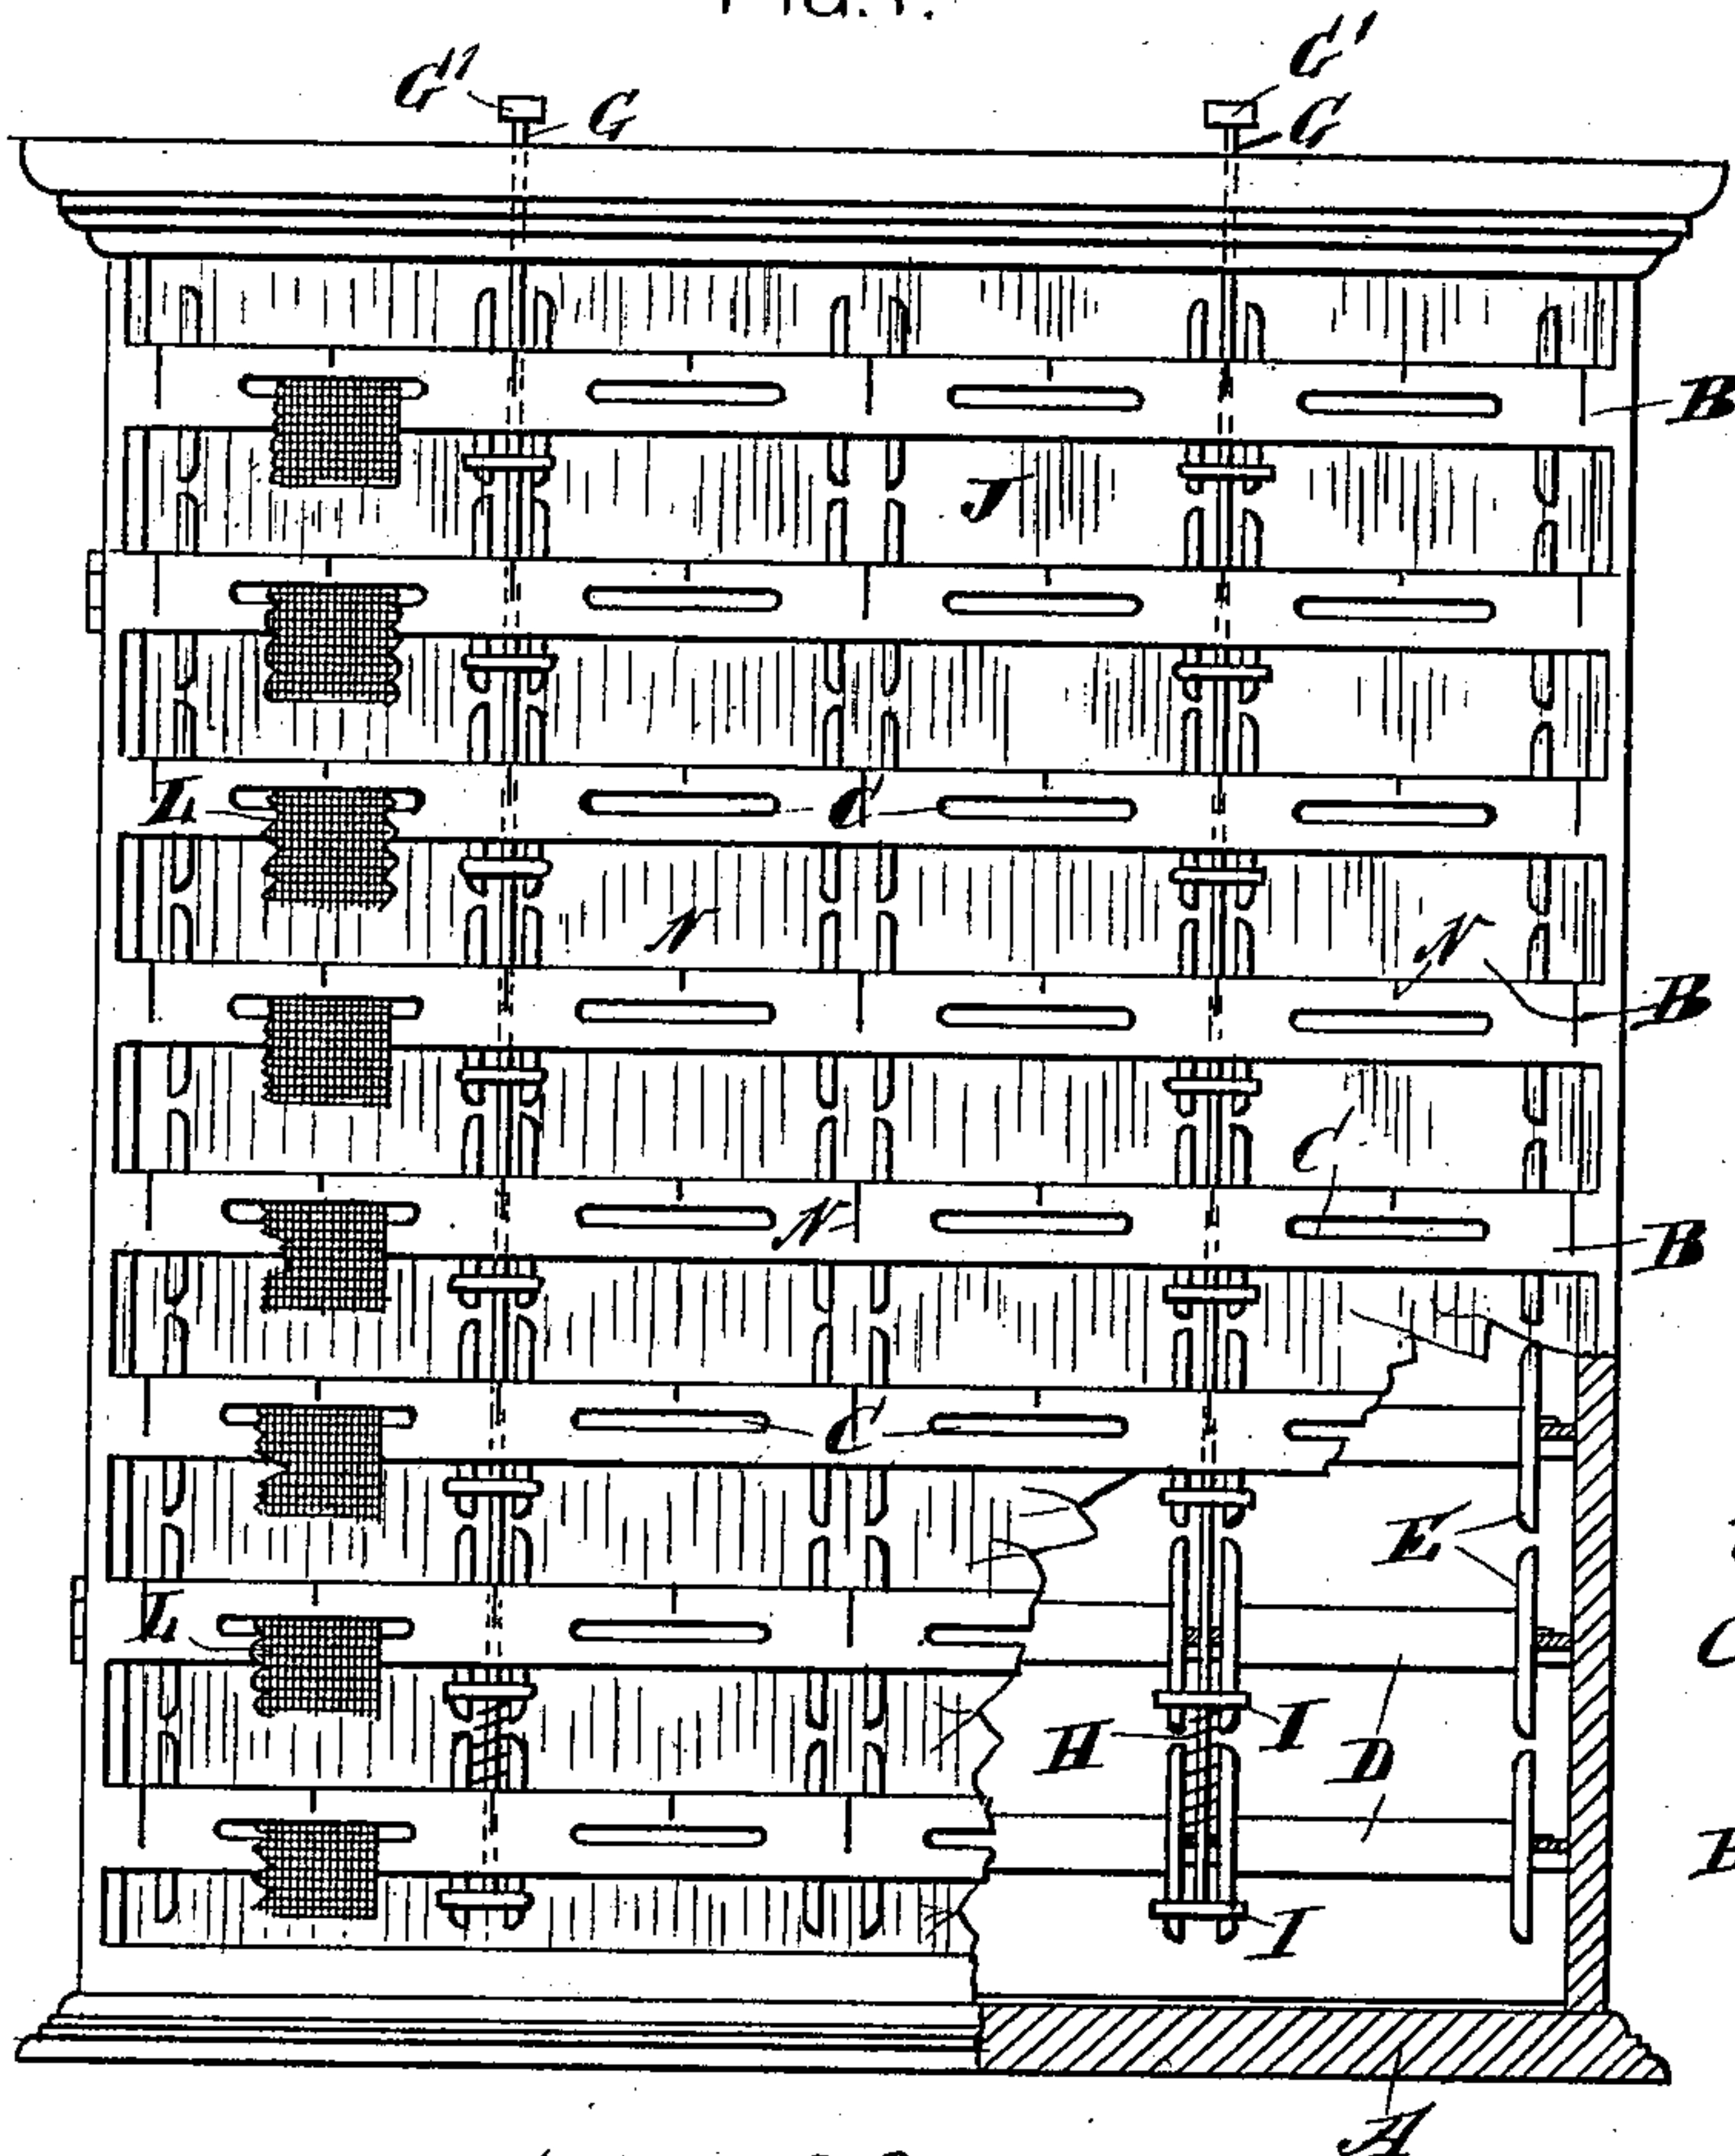 FIG.1.
G'' G G' G
B
J
L C
N N B
C
N B
C
E
L
H I D
I
A